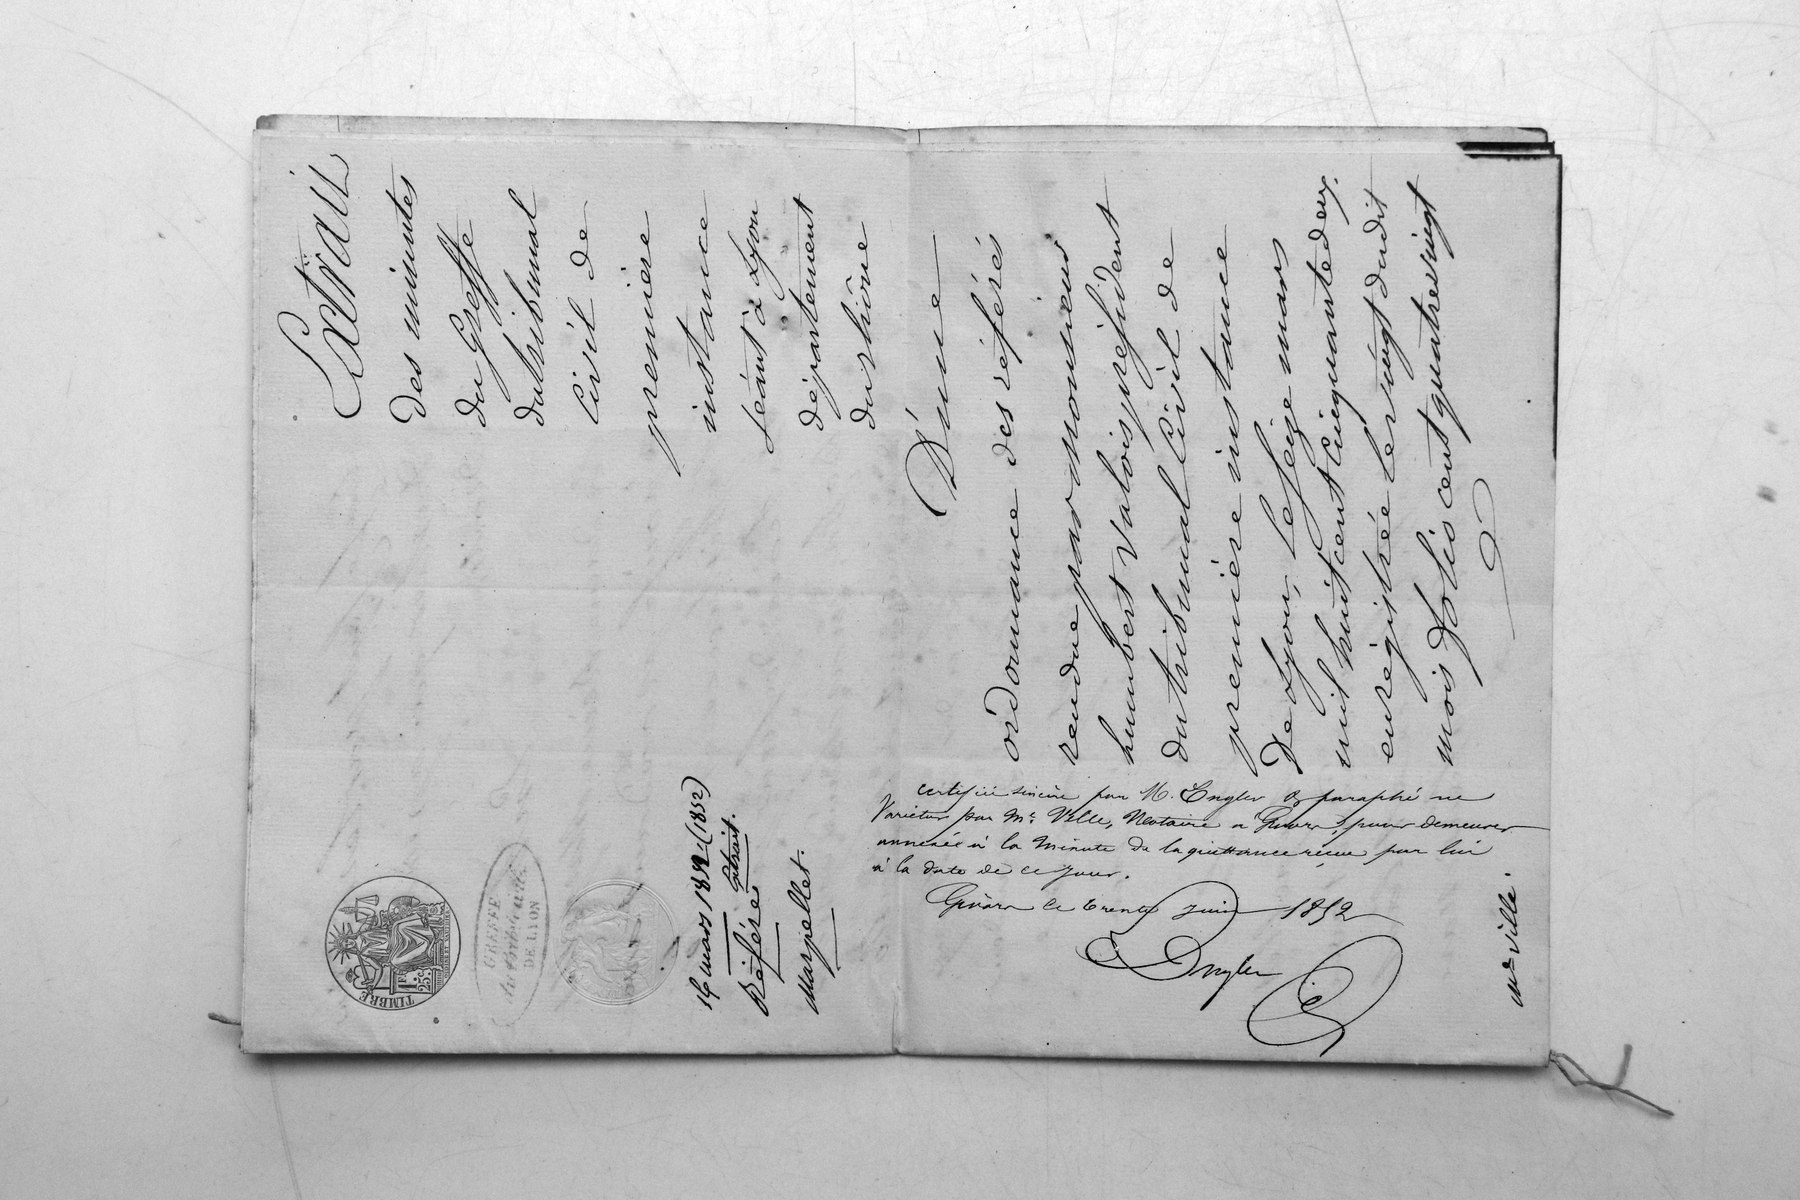 Extrait
des minutes
du Greffe
du tribunal
Civil de
première
instance
séant à Lyon
département
du rhône
D'une
ordonnance des référés
rendue par monsieur
humbert Valois président
du tribunal Civil de
première instance
de Lyon, le seize mars
mil huit cent cinquante deux
enregistrée le vingt dudit
mois folio cent quatre vingt
TIMBRE
1F. 25c.
GREFFE
du tribunal civil
DE LYON
16 mars 1852 (1852)
Référé Extrait.
Marpellet.
certifié sincère par M. Engler & paraphé ne
Varietur par Me Ville, Notaire à Givors, pour demeurer
annexée à la Minute de la quittance reçue par lui
à la date de ce jour.
Givors le trente Juin 1852
Engler
Me Ville.